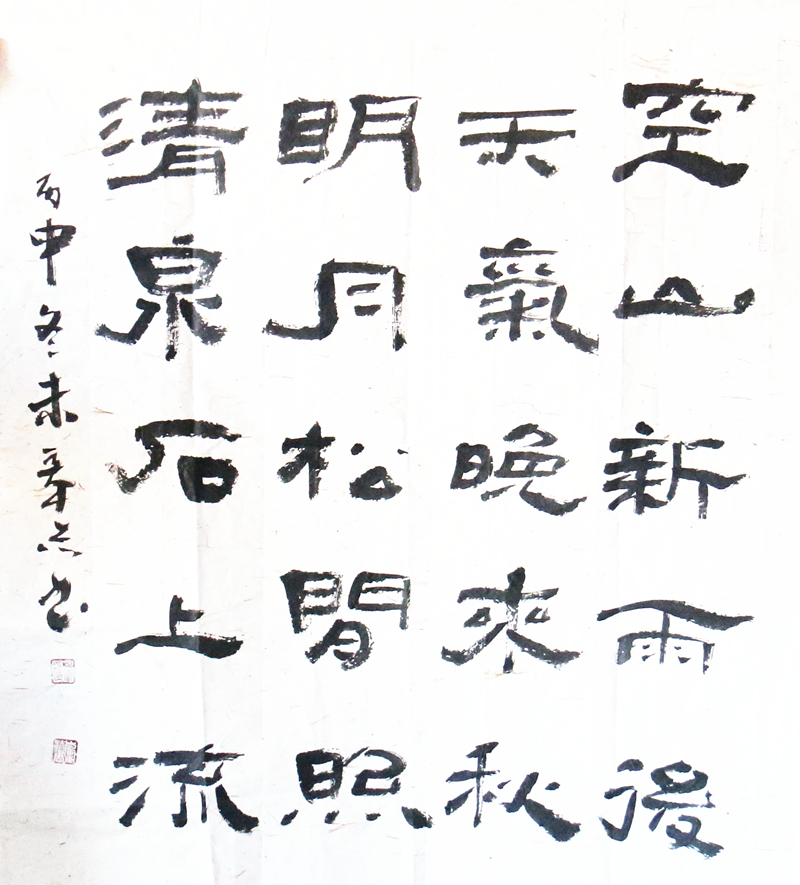 空山新雨後
天氣晚來秋
明月松間照
清泉石上流
丙申冬未